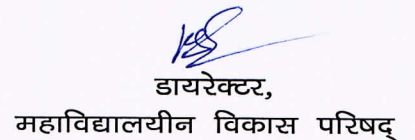 डायरेक्टर,
महाविद्यालयीन विकास परिषद्